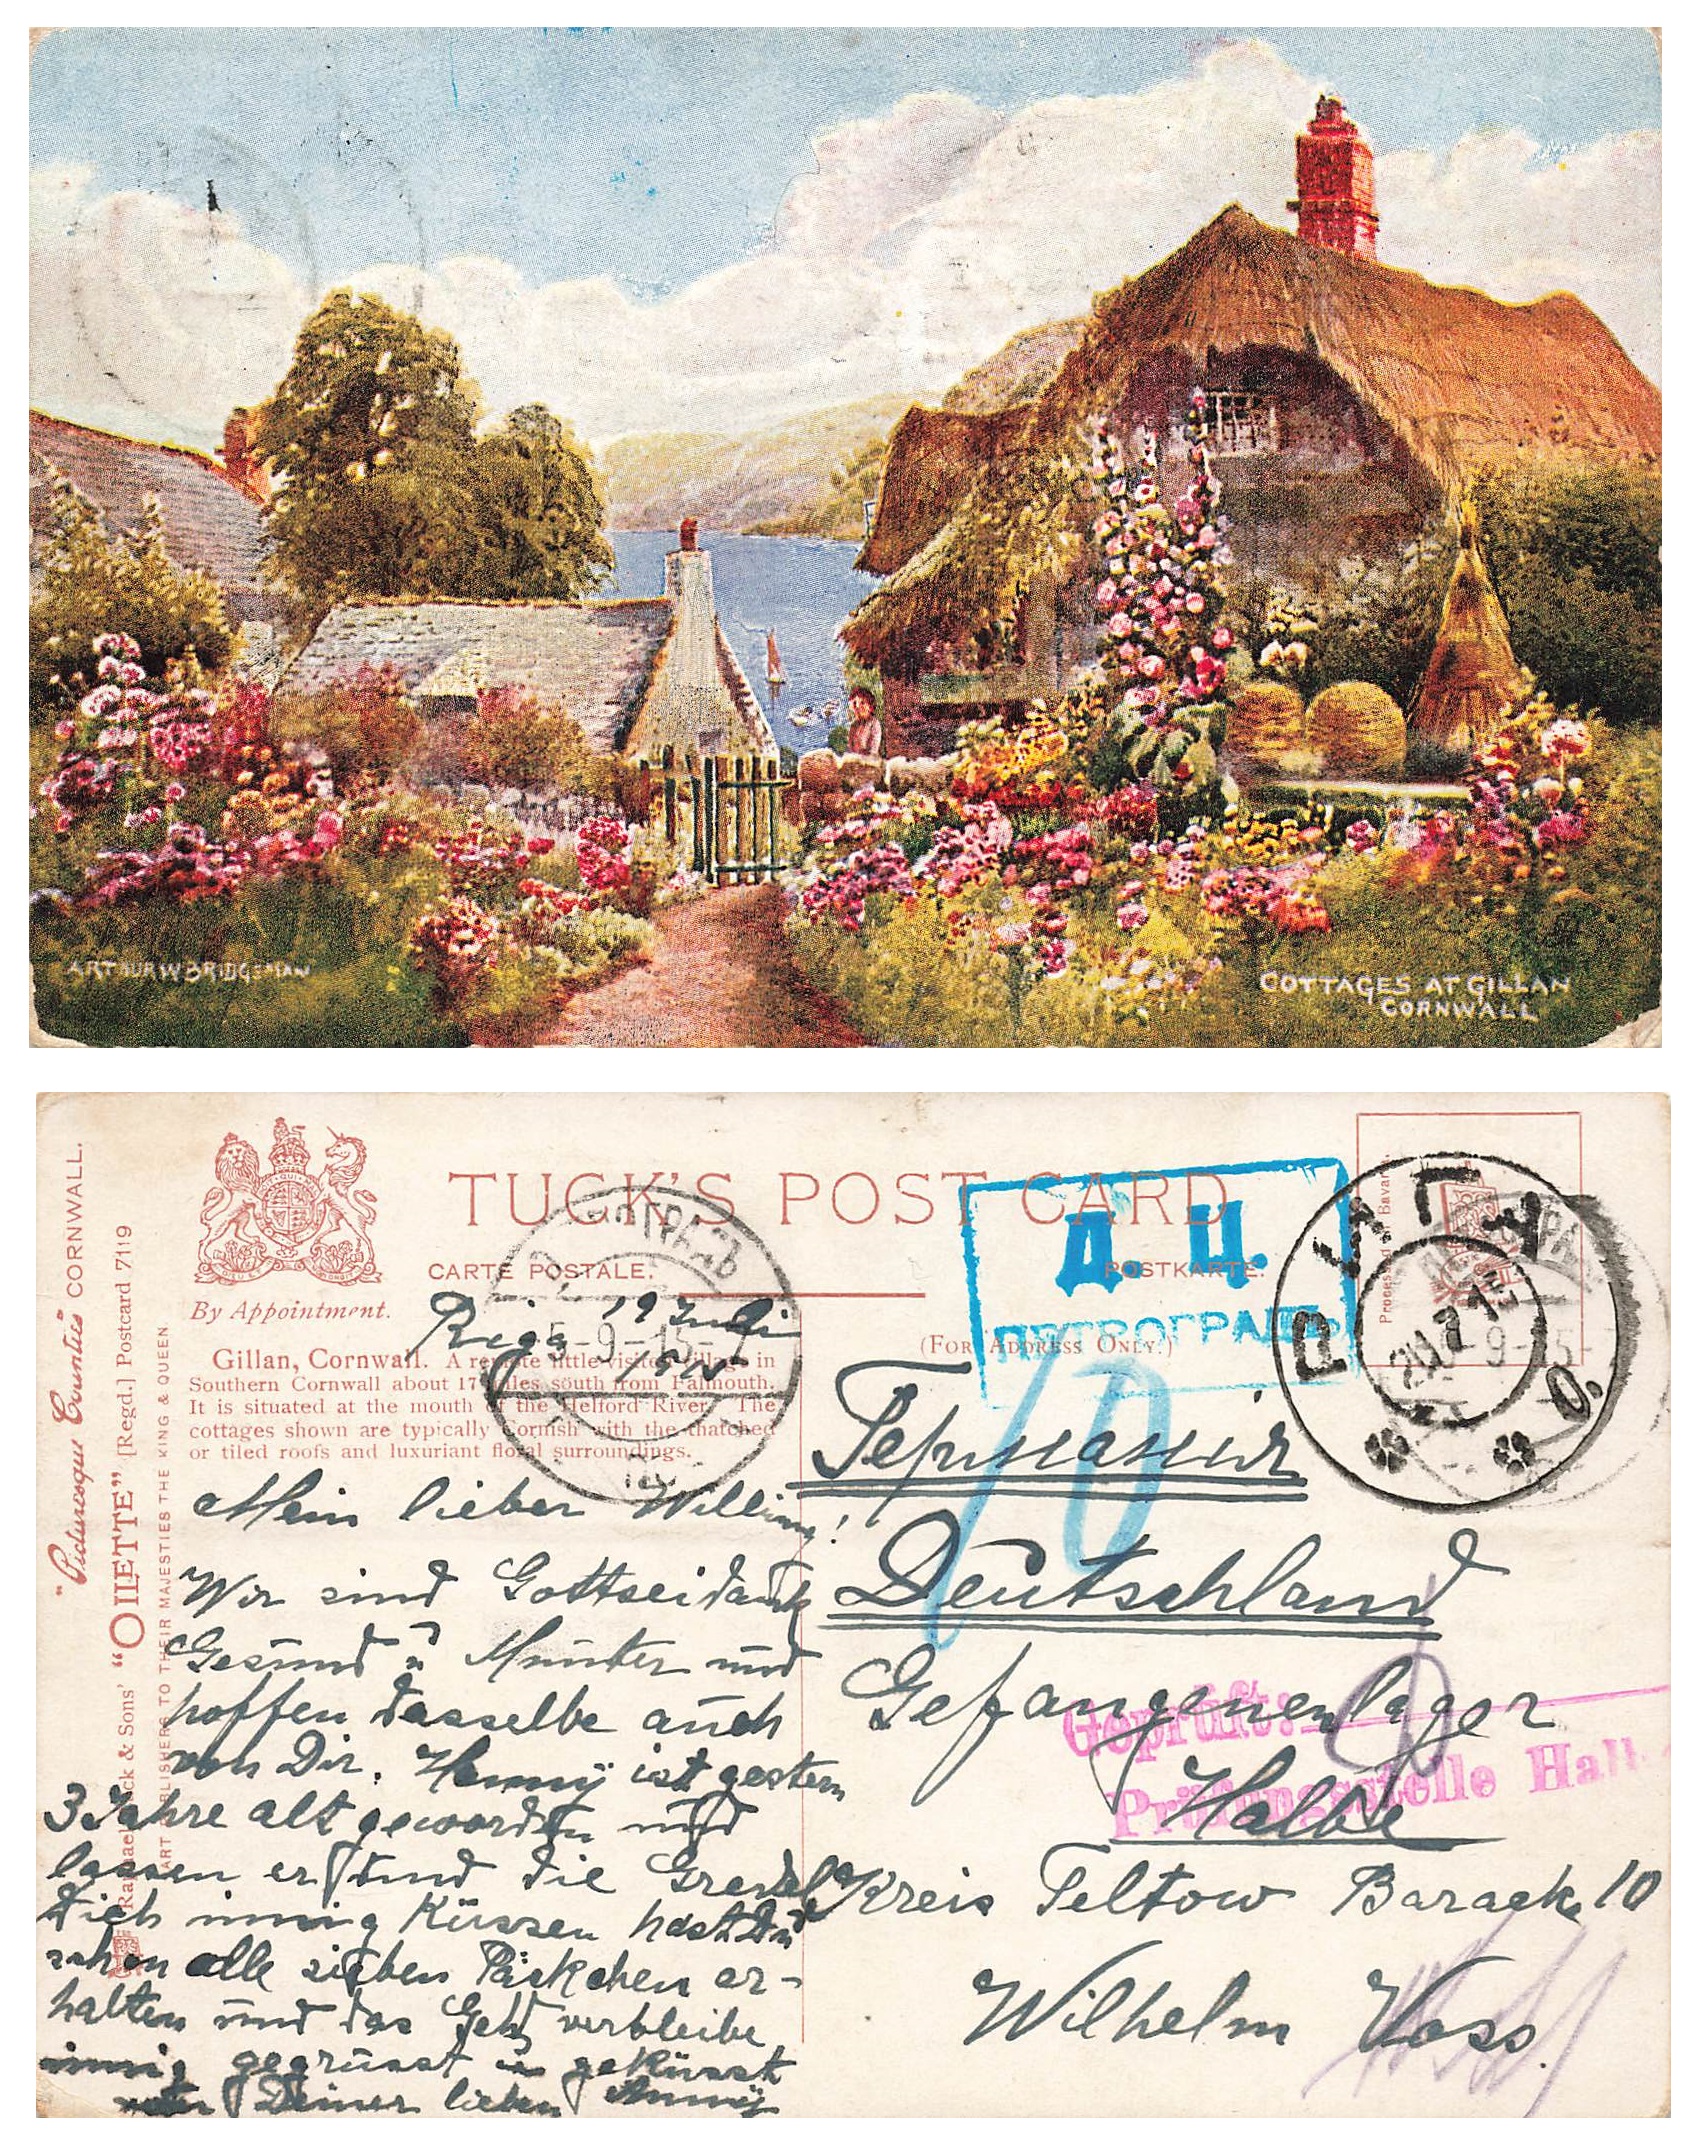 ARTHUR W BRIDGEMAN
COTTAGES AT GILLAN
CORNWALL
"Picturesque Counties" CORNWALL.
Raphael Tuck & Sons' "OILETTE" [Regd.] Postcard 7119
ART PUBLISHERS TO THEIR MAJESTIES THE KING & QUEEN
By Appointment.
TUCK'S POST CARD
CARTE POSTALE.
POSTKARTE.
(FOR ADDRESS ONLY.)
Processed in Bavaria.
Gillan, Cornwall. A remote little visited village in
Southern Cornwall about 17 miles south from Falmouth.
It is situated at the mouth of the Helford River. The
cottages shown are typically Cornish with the thatched
or tiled roofs and luxuriant floral surroundings.
Д. Ц.
ПЕТРОГРАДЪ
РИГА
20 7 15
О.
5-9-15
9-15
Riga 19 Juli
1915
Mein lieber Willi
Wir sind Gottseidank
Gesund u Munter und
hoffen dasselbe auch
von Dir. Hanny ist gestern
3 Jahre alt geworden und
lassen er und die Gredel
Dich innig Küssen hast Du
schon alle sieben Päckchen er-
halten und das Geld verbleibe
innig gegrüsst u geküsst
von Deiner lieben Anny
10
Германія
Deutschland
Gefangenenlager
Halbe
Kreis Teltow Barack 10
Wilhelm Voss.
Geprüft:
Prüfungsstelle Halbe